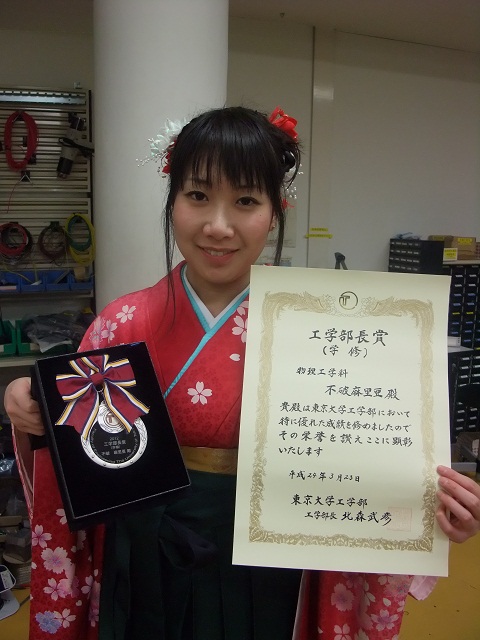 工学部長賞
(学修)
物理工学科
不破麻里亜 殿
貴殿は東京大学工学部において
特に優れた成績を修めましたので
その栄誉を讃えここに顕彰
いたします
平成24年3月23日
東京大学工学部
工学部長 北森武彦
2012
工学部長賞
(学修)
不破 麻里亜 殿